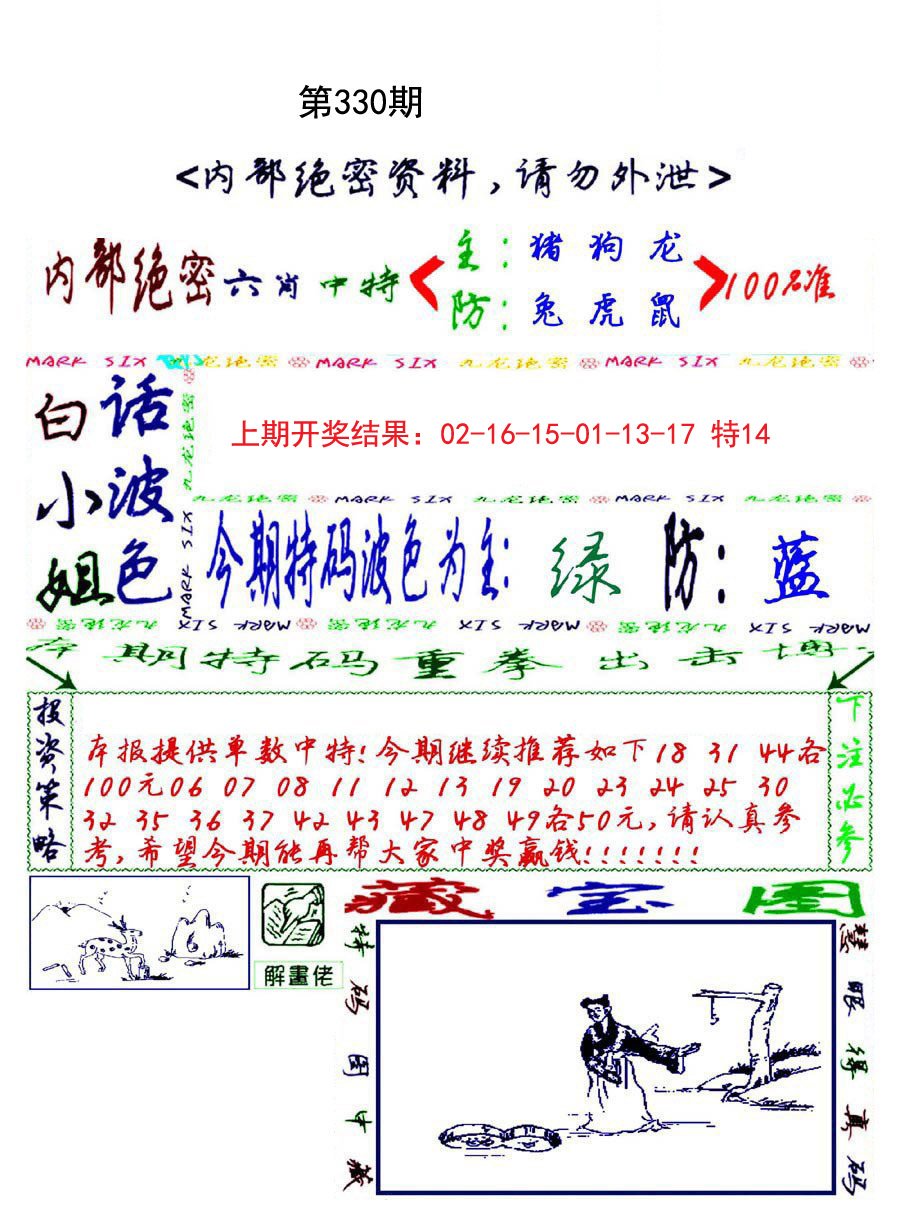 第330期
<内部绝密资料,请勿外泄>
内部绝密六肖中特
主:猪 狗 龙
防:兔 虎 鼠
100%准
MARK SIX 九龙绝密 MARK SIX 九龙绝密 MARK SIX 九龙绝密
白小姐
话波色
九龙绝密
MARK SIX
上期开奖结果：02-16-15-01-13-17 特14
九龙绝密 MARK SIX 九龙绝密 MARK SIX 九龙绝密
今期特码波色为主:绿 防:蓝
九龙绝密 MARK SIX 九龙绝密 MARK SIX 九龙绝密 MARK SIX
本期特码重拳出击博
投资策略
本报提供单数中特!今期继续推荐如下18 31 44各
100元06 07 08 11 12 13 19 20 23 24 25 30
32 35 36 37 42 43 47 48 49各50元,请认真参
考,希望今期能再帮大家中奖赢钱!!!!!!!
下注必参
解畫佬
藏宝图
特码图中藏
慧眼得真码